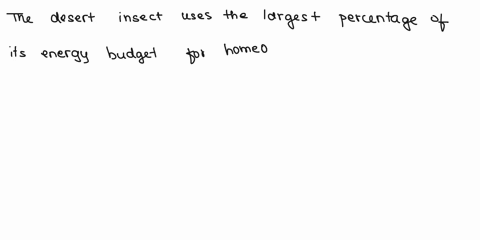 The desert insect uses the largest percentage of
its energy budget for homeo